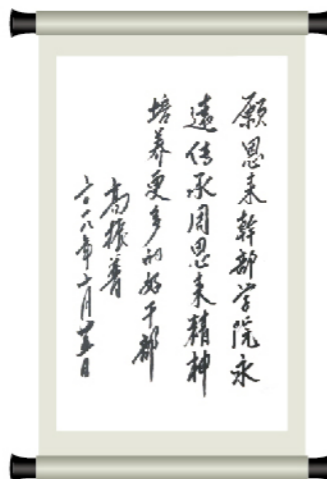 願恩来幹部学院永
遠传承周恩来精神
培养更多的好干部
高振普
二〇一八年十月廿五日